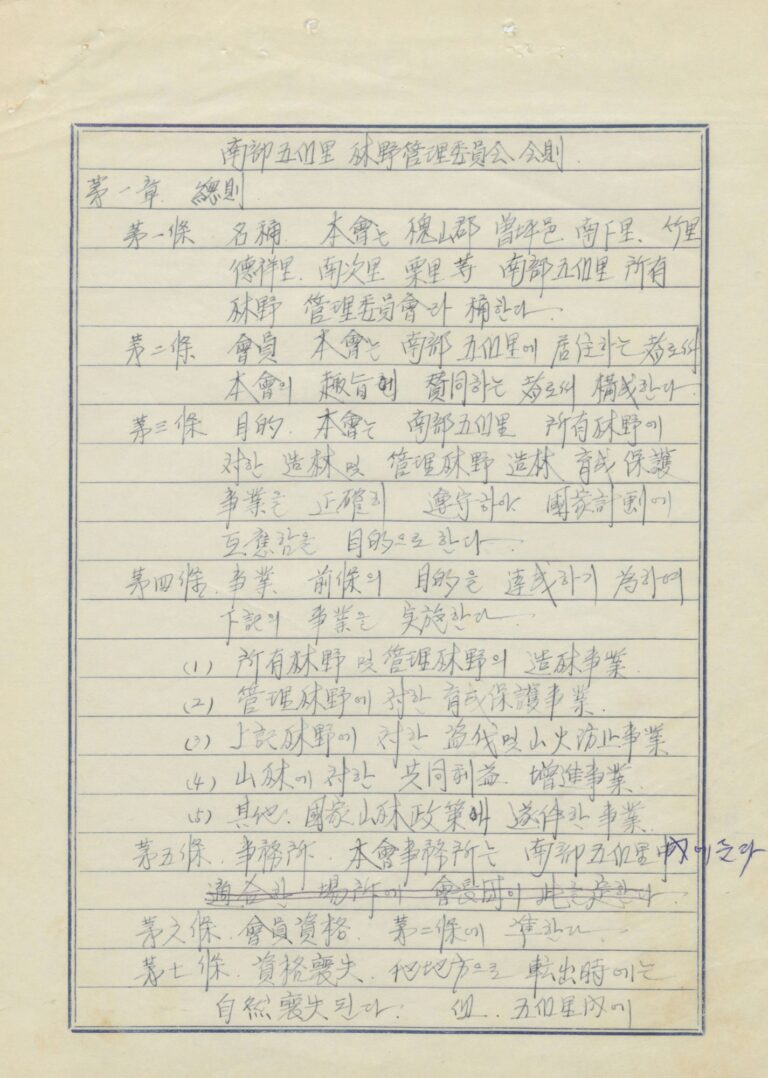 南部五個里 林野管理委員会 会則.
第一章 總則
第一條 名稱. 本會는 槐山郡 曾坪邑. 南下里. 竹里
德祥里. 南次里 栗里 等 南部五個里 所有
林野 管理委員會라 稱한다.
第二條 會員 本會는 南部 五個里에 居住하는 者로서
本會의 趣旨에 賛同하는 者로서 構成한다.
第三條 目的. 本會는 南部五個里 所有林野에
対한 造林 및 管理林野 造林 育成 保護
事業을 正確히 遵守하야 國家計劃에
互應함을 目的으로 한다.
第四條. 事業. 前條의 目的을 達成하기 為하여
下記의 事業을 実施한다.
(1) 所有林野 및 管理林野의 造林事業.
(2) 管理林野에 対한 育成保護事業.
(3) 上記林野에 対한 盜伐 및 山火防止事業
(4) 山林에 対한 共同利益. 增進事業.
(5) 其他. 國家山林政策에 한 事業.
第五條. 事務所. 本會事務所는 南部五個里 에 둔다
適合한 場所에 會長 이 此를 定한다.
第六條. 會員資格. 第二條에 準한다.
第七條. 資格喪失. 他地方으로 転出時에는
自然喪失된다. 但. 五個里 에